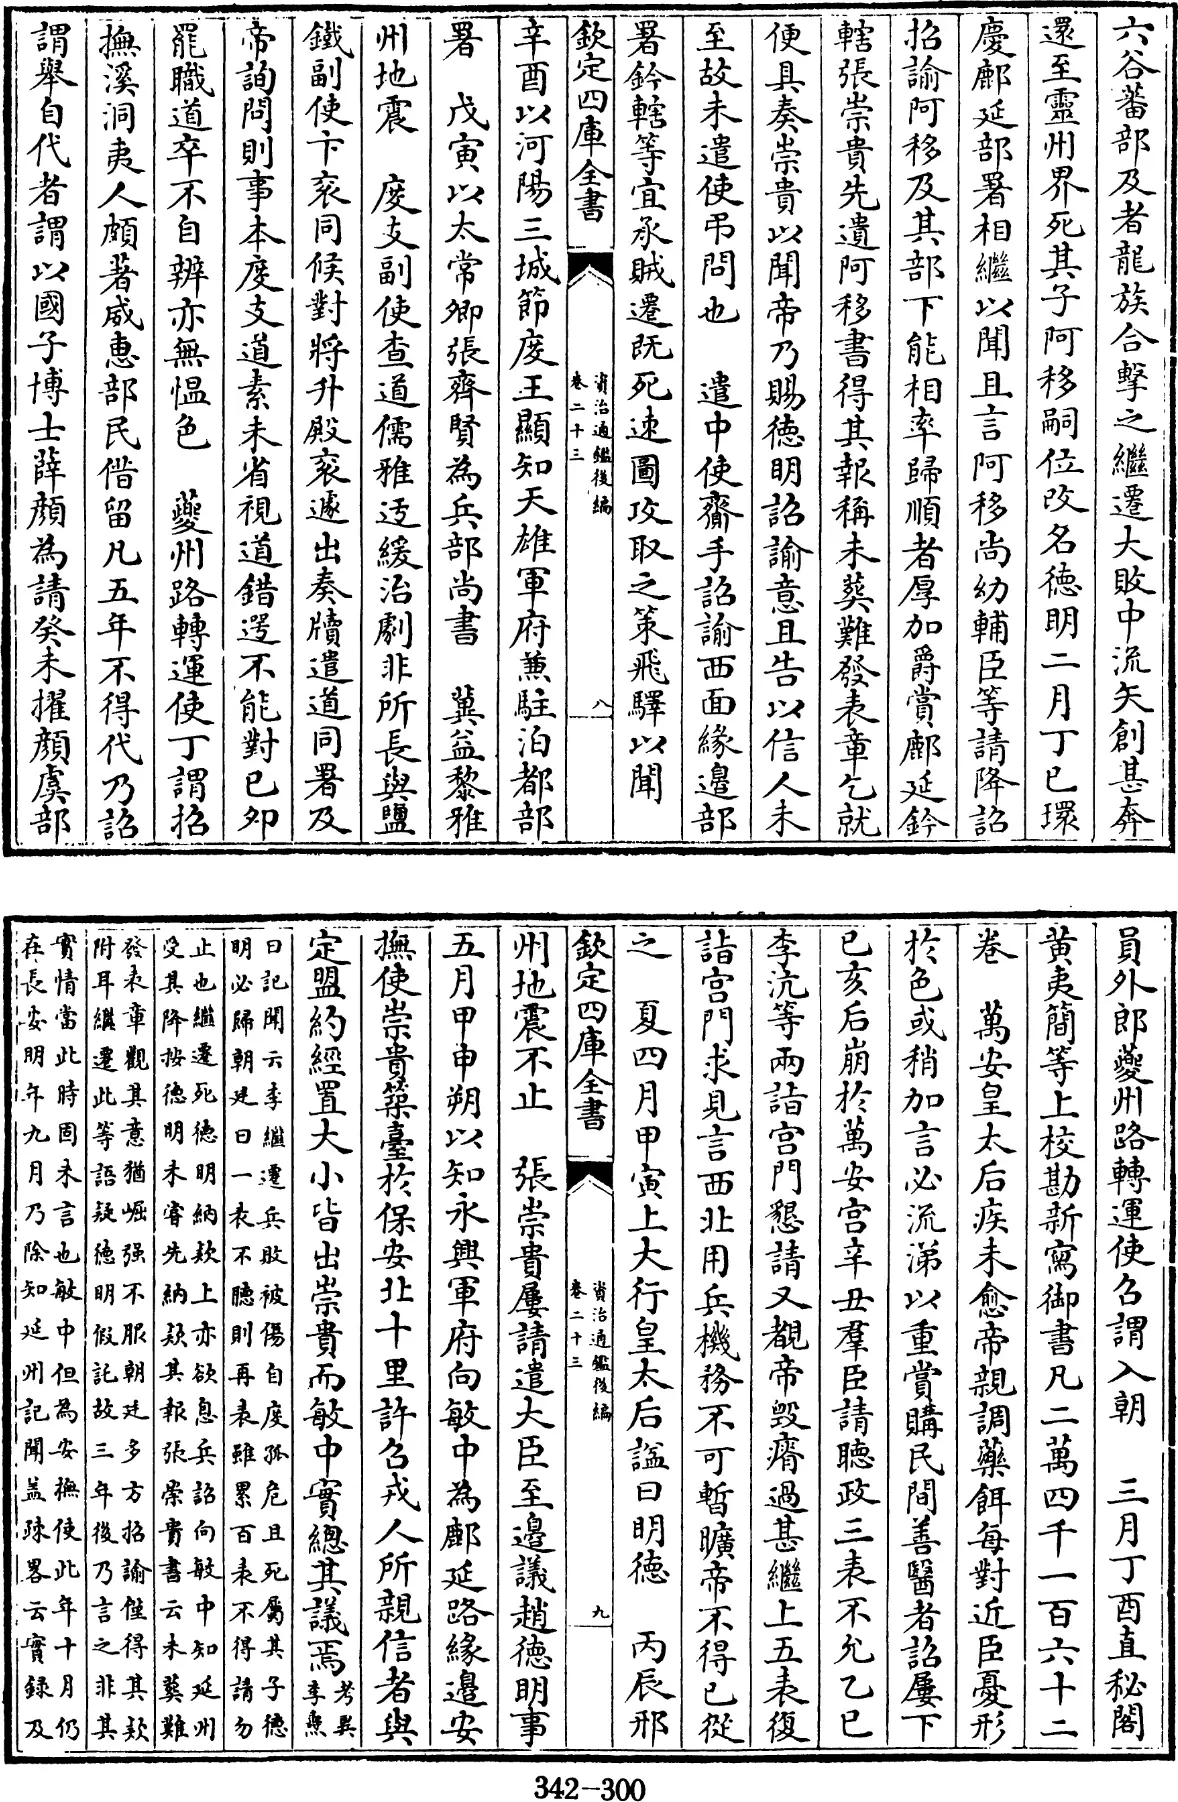 六谷蕃部及者龍族合擊之繼遷大敗中流矢創甚奔
還至靈州界死其子阿移嗣位改名德明二月丁巳環
慶鄜延部署相繼以聞且言阿移尚幼輔臣等請降詔
招諭阿移及其部下能相率歸順者厚加爵賞鄜延鈐
轄張崇貴先遺阿移書得其報稱未葬難發表章乞就
便具奏崇貴以聞帝乃賜德明詔諭意且告以信人未
至故未遣使弔問也　遣中使齎手詔諭西面緣邊部
署鈐轄等宜承賊遷既死速圖攻取之策飛驛以聞
欽定四庫全書
資治通鑑後編
卷二十三
八
辛酉以河陽三城節度王顯知天雄軍府兼駐泊都部
署　戊寅以太常卿張齊賢為兵部尚書　冀益黎雅
州地震　度支副使查道儒雅迂緩治劇非所長與鹽
鐵副使卞衮同候對將升殿衮遽出奏牘遣道同署及
帝詢問則事本度支道素未省視道錯愕不能對己卯
罷職道卒不自辨亦無愠色　夔州路轉運使丁謂招
撫溪洞夷人頗著威惠部民借留凡五年不得代乃詔
謂舉自代者謂以國子博士薛顏為請癸未擢顏虞部
員外郎夔州路轉運使召謂入朝　三月丁酉直秘閣
黄夷簡等上校勘新寫御書凡二萬四千一百六十二
卷　萬安皇太后疾未愈帝親調藥餌每對近臣憂形
於色或稍加言必流涕以重賞購民間善醫者詔屢下
己亥后崩於萬安宫辛丑羣臣請聽政三表不允乙巳
李沆等兩詣宫門懇請又覩帝毁瘠過甚繼上五表復
詣宫門求見言西北用兵機務不可暫曠帝不得已從
之　夏四月甲寅上大行皇太后諡曰明德　丙辰邢
欽定四庫全書
資治通鑑後編
卷二十三
九
州地震不止　張崇貴屢請遣大臣至邊議趙德明事
五月甲申朔以知永興軍府向敏中為鄜延路緣邊安
撫使崇貴築臺於保安北十里許召戎人所親信者與
定盟約經置大小皆出崇貴而敏中實總其議焉考異
李燾
曰記聞云李繼遷兵敗被傷自度孤危且死屬其子德
明必歸朝廷曰一表不聽則再表雖累百表不得請勿
止也繼遷死德明納欵上亦欲息兵詔向敏中知延州
受其降按德明未嘗先納欵其報張崇貴書云未葬難
發表章觀其意猶崛强不服朝廷多方招諭僅得其欵
附耳繼遷此等語疑德明假託故三年後乃言之非其
實情當此時固未言也敏中但為安撫使此年十月仍
在長安明年九月乃除知延州記聞盖疎畧云實録及
342-300